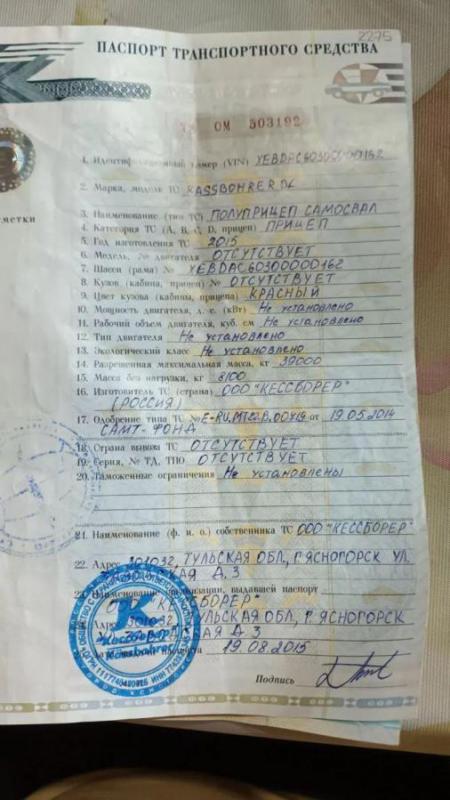 2275
ПАСПОРТ ТРАНСПОРТНОГО СРЕДСТВА
ОМ 503192
1. Идентификационный номер (VIN) XEBDAC60300000162
2. Марка, модель ТС KASSBOHRER DL
3. Наименование (тип ТС) ПОЛУПРИЦЕП САМОСВАЛ
4. Категория ТС (А, В, С, D, прицеп) ПРИЦЕП
5. Год изготовления ТС 2015
6. Модель, № двигателя ОТСУТСТВУЕТ
7. Шасси (рама) № XEBDAC60300000162
8. Кузов (кабина, прицеп) № ОТСУТСТВУЕТ
отметки
9. Цвет кузова (кабины, прицепа) КРАСНЫЙ
10. Мощность двигателя, л. с. (кВт) Не установлено
11. Рабочий объем двигателя, куб. см Не установлено
12. Тип двигателя Не установлено
13. Экологический класс Не установлено
14. Разрешенная максимальная масса, кг 39000
15. Масса без нагрузки, кг 8100
16. Изготовитель ТС (страна) ООО "КЕССБОРЕР"
(РОССИЯ)
17. Одобрение типа ТС № от 19.05.2014
САМТ-ФОНД
18. Страна вывоза ТС ОТСУТСТВУЕТ
19. Серия, № ТД, ТПО ОТСУТСТВУЕТ
20. Таможенные ограничения Не установлены
21. Наименование (ф. и. о.) собственника ТС ООО "КЕССБОРЕР"
22. Адрес 301032, ТУЛЬСКАЯ ОБЛ, Г ЯСНОГОРСК УЛ.
Д. 3
23. Наименование организации, выдавшей паспорт
"КЕССБОРЕР"
301032, ТУЛЬСКАЯ ОБЛ, Г ЯСНОГОРСК
Д 3
паспорта 19.08.2015
Подпись